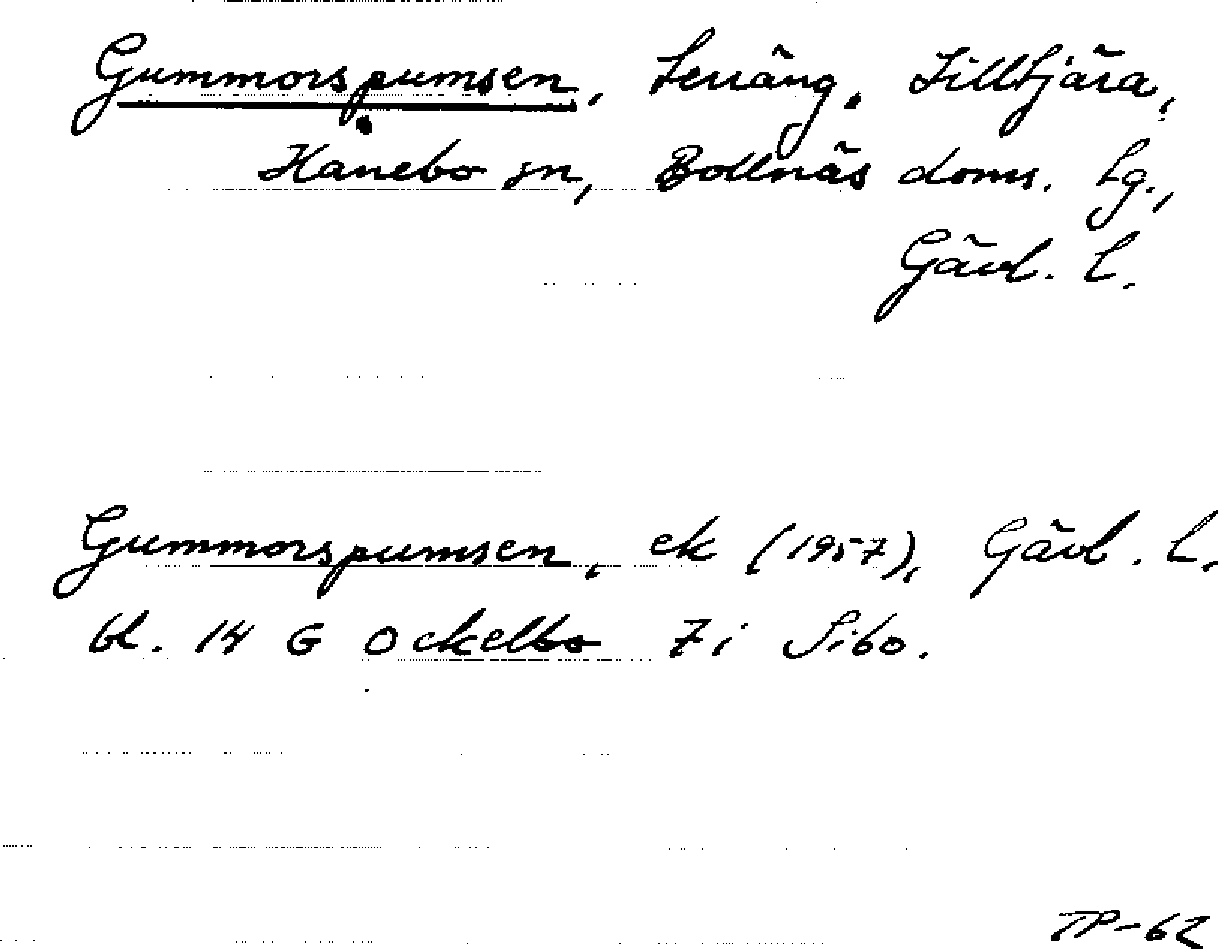 Gummorspumsen, terräng. Lilltjära,
Hanebo sn, Bollnäs doms. tg.,
Gävl. l.
Gummorspumsen, ek (1957), Gävl. l.
bl. 14 G Ockelbo 7i Sibo.
TP-62